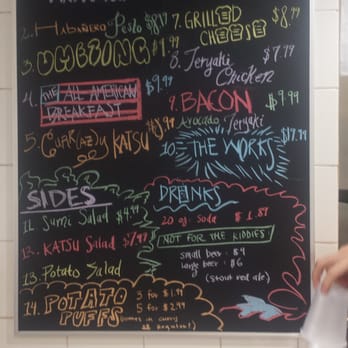 2. HABAÑERO Pesto $8.19
3. UMEBOMB $7.99
4. THE ALL AMERICAN BREAKFAST $9.99
5. CURR(AZ)Y KATSU $8.99
7. GRILLED CHEESE $8.79
8. Teryaki Chicken $7.79
9. BACON $9.99
Avocado Teryaki
10. THE WORKS $17.79
SIDES
11. Sumi Salad $4.99
12. KATSU Salad $7.99
13. Potato Salad
14. POTATO PUFFS 3 for $1.99
5 for $2.99
(comes in curry
or regular!)
DRINKS
20 oz. Soda $1.87
NOT FOR THE KIDDIES!
small beer : $4
large beer : $6
(stout red ale)